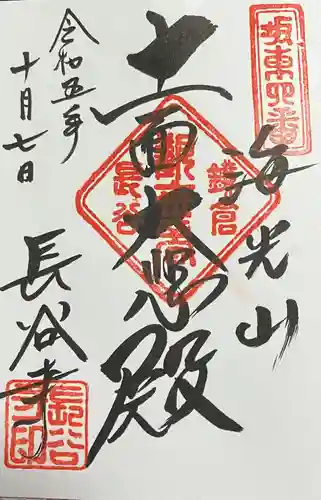 坂東四番
海光山
十一面大悲殿
鎌倉
長谷
令和五年
十月七日
長谷寺
長谷寺印